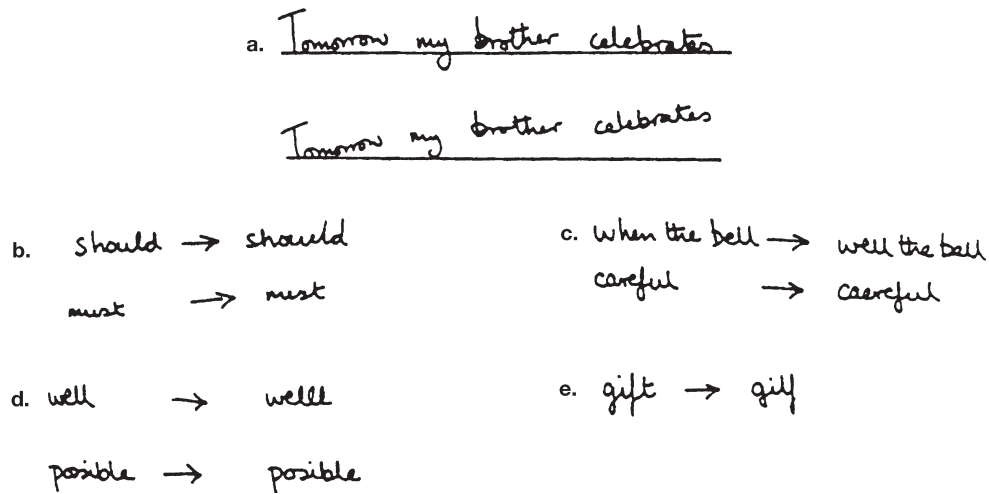 a. Tomorrow my brother celebrates
Tomorrow my brother celebrates
b. should → shouuld
must → must
c. when the bell → well the bell
careful → caereful
d. well → welll
posible → posible
e. gift → gilf